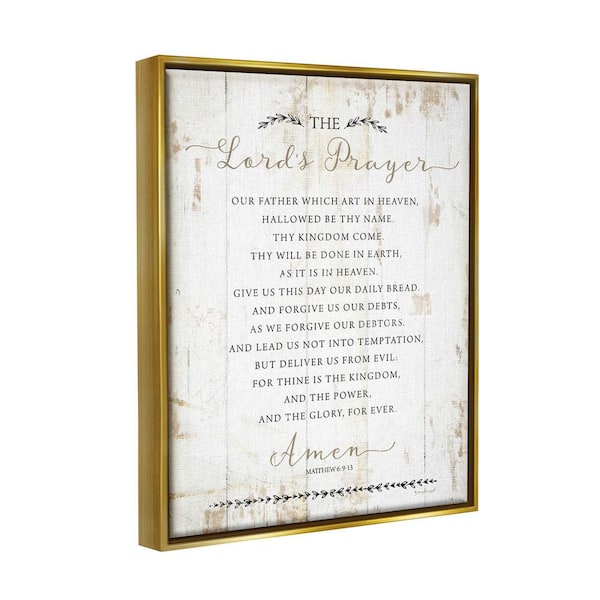 THE
Lord's Prayer
OUR FATHER WHICH ART IN HEAVEN,
HALLOWED BE THY NAME.
THY KINGDOM COME.
THY WILL BE DONE IN EARTH,
AS IT IS IN HEAVEN.
GIVE US THIS DAY OUR DAILY BREAD.
AND FORGIVE US OUR DEBTS,
AS WE FORGIVE OUR DEBTORS.
AND LEAD US NOT INTO TEMPTATION,
BUT DELIVER US FROM EVIL:
FOR THINE IS THE KINGDOM,
AND THE POWER,
AND THE GLORY, FOR EVER.
Amen
MATTHEW 6:9-13